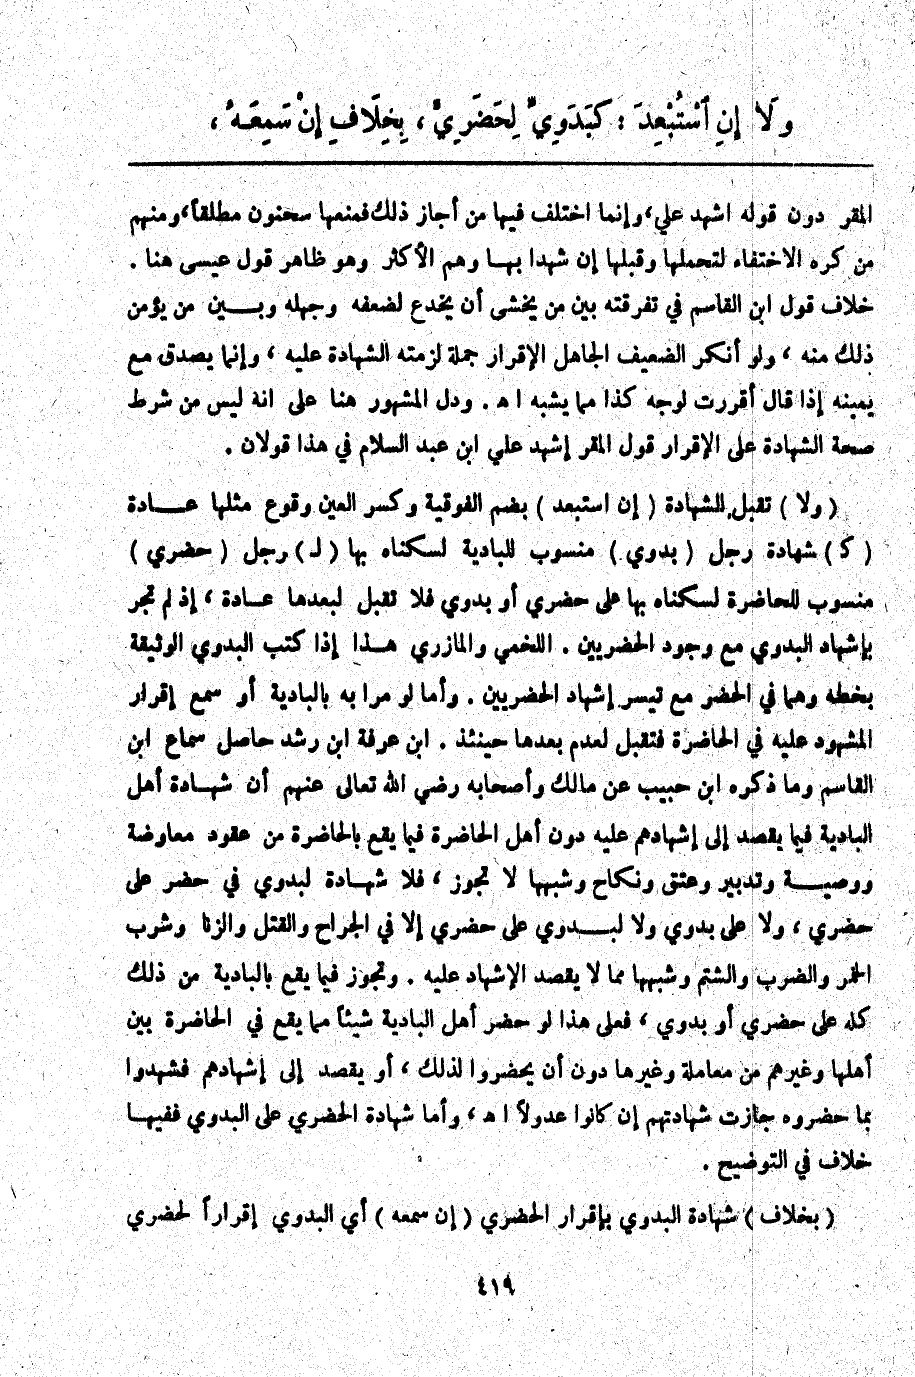 وَلَا إِنِ ٱسْتُبْعِدَ : كَبَدَوِيٍّ لِحَضَرِيٍّ ، بِخِلَافِ إِنْ سَمِعَهُ ،
المقر دون قوله اشهد علي ، وإنما اختلف فيها من أجاز ذلك فمنعها سحنون مطلقاً ، ومنهم
من كره الاختفاء لتحملها وقبلها إن شهدا بهـا وهم الأكثر وهو ظاهر قول عيسى هنا .
خلاف قول ابن القاسم في تفرقته بين من يخشى أن يخدع لضعفه وجهله وبـين من يؤمن
ذلك منه ، ولو أنكر الضعيف الجاهل الإقرار جملة لزمته الشهادة عليه ، وإنما يصدق مع
يمينه إذا قال أقررت لوجه كذا مما يشبه ا هـ . ودل المشهور هنا على انه ليس من شرط
صحة الشهادة على الإقرار قول المقر إشهد علي ابن عبد السلام في هذا قولان .
( ولا ) تقبل الشهادة ( إن استبعد ) بضم الفوقية وكسر العين وقوع مثلها عـادة
( كـ ) شهادة رجل ( بدوي ) منسوب للبادية لسكناه بها ( لـ ) رجل ( حضري )
منسوب للحاضرة لسكناه بها على حضري أو بدوي فلا تقبل لبعدها عـادة ، إذ لم تجر
بإشهاد البدوي مع وجود الحضريين . اللخمي والمازري هـذا إذا كتب البدوي الوثيقة
بخطه وهما في الحضر مع تيسر إشهاد الحضريين . وأما لو مرا به بالبادية أو سمع إقرار
المشهود عليه في الحاضرة فتقبل لعدم بعدها حينئذ . ابن عرفة ابن رشد حاصل سماع ابن
القاسم وما ذكره ابن حبيب عن مالك وأصحابه رضي الله تعالى عنهم أن شهـادة أهل
البادية فيما يقصد إلى إشهادهم عليه دون أهل الحاضرة فيما يقع بالحاضرة من عقود معاوضة
ووصيـة وتدبير وعتق ونكاح وشبهها لا تجوز ، فلا شهـادة لبدوي في حضر على
حضري ، ولا على بدوي ولا لبـدوي على حضري إلا في الجراح والقتل والزنا وشرب
الخمر والضرب والشتم وشبهها مما لا يقصد الإشهاد عليه . وتجوز فيما يقع بالبادية من ذلك
كله على حضري أو بدوي ، فعلى هذا لو حضر أهل البادية شيئاً مما يقع في الحاضرة بين
أهلها وغيرهم من معاملة وغيرها دون أن يحضروا لذلك ، أو يقصد إلى إشهادهم فشهدوا
بما حضروه جازت شهادتهم إن كانوا عدولاً ا هـ ، وأما شهادة الحضري على البدوي ففيهـا
خلاف في التوضيح .
( بخلاف ) شهادة البدوي بإقرار الحضري ( إن سمعه ) أي البدوي إقراراً لحضري
٤١٩